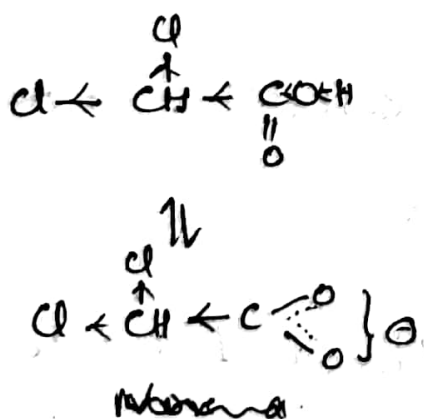 Cl
Cl CH C O H
O
Cl
Cl CH C O
O
⊖